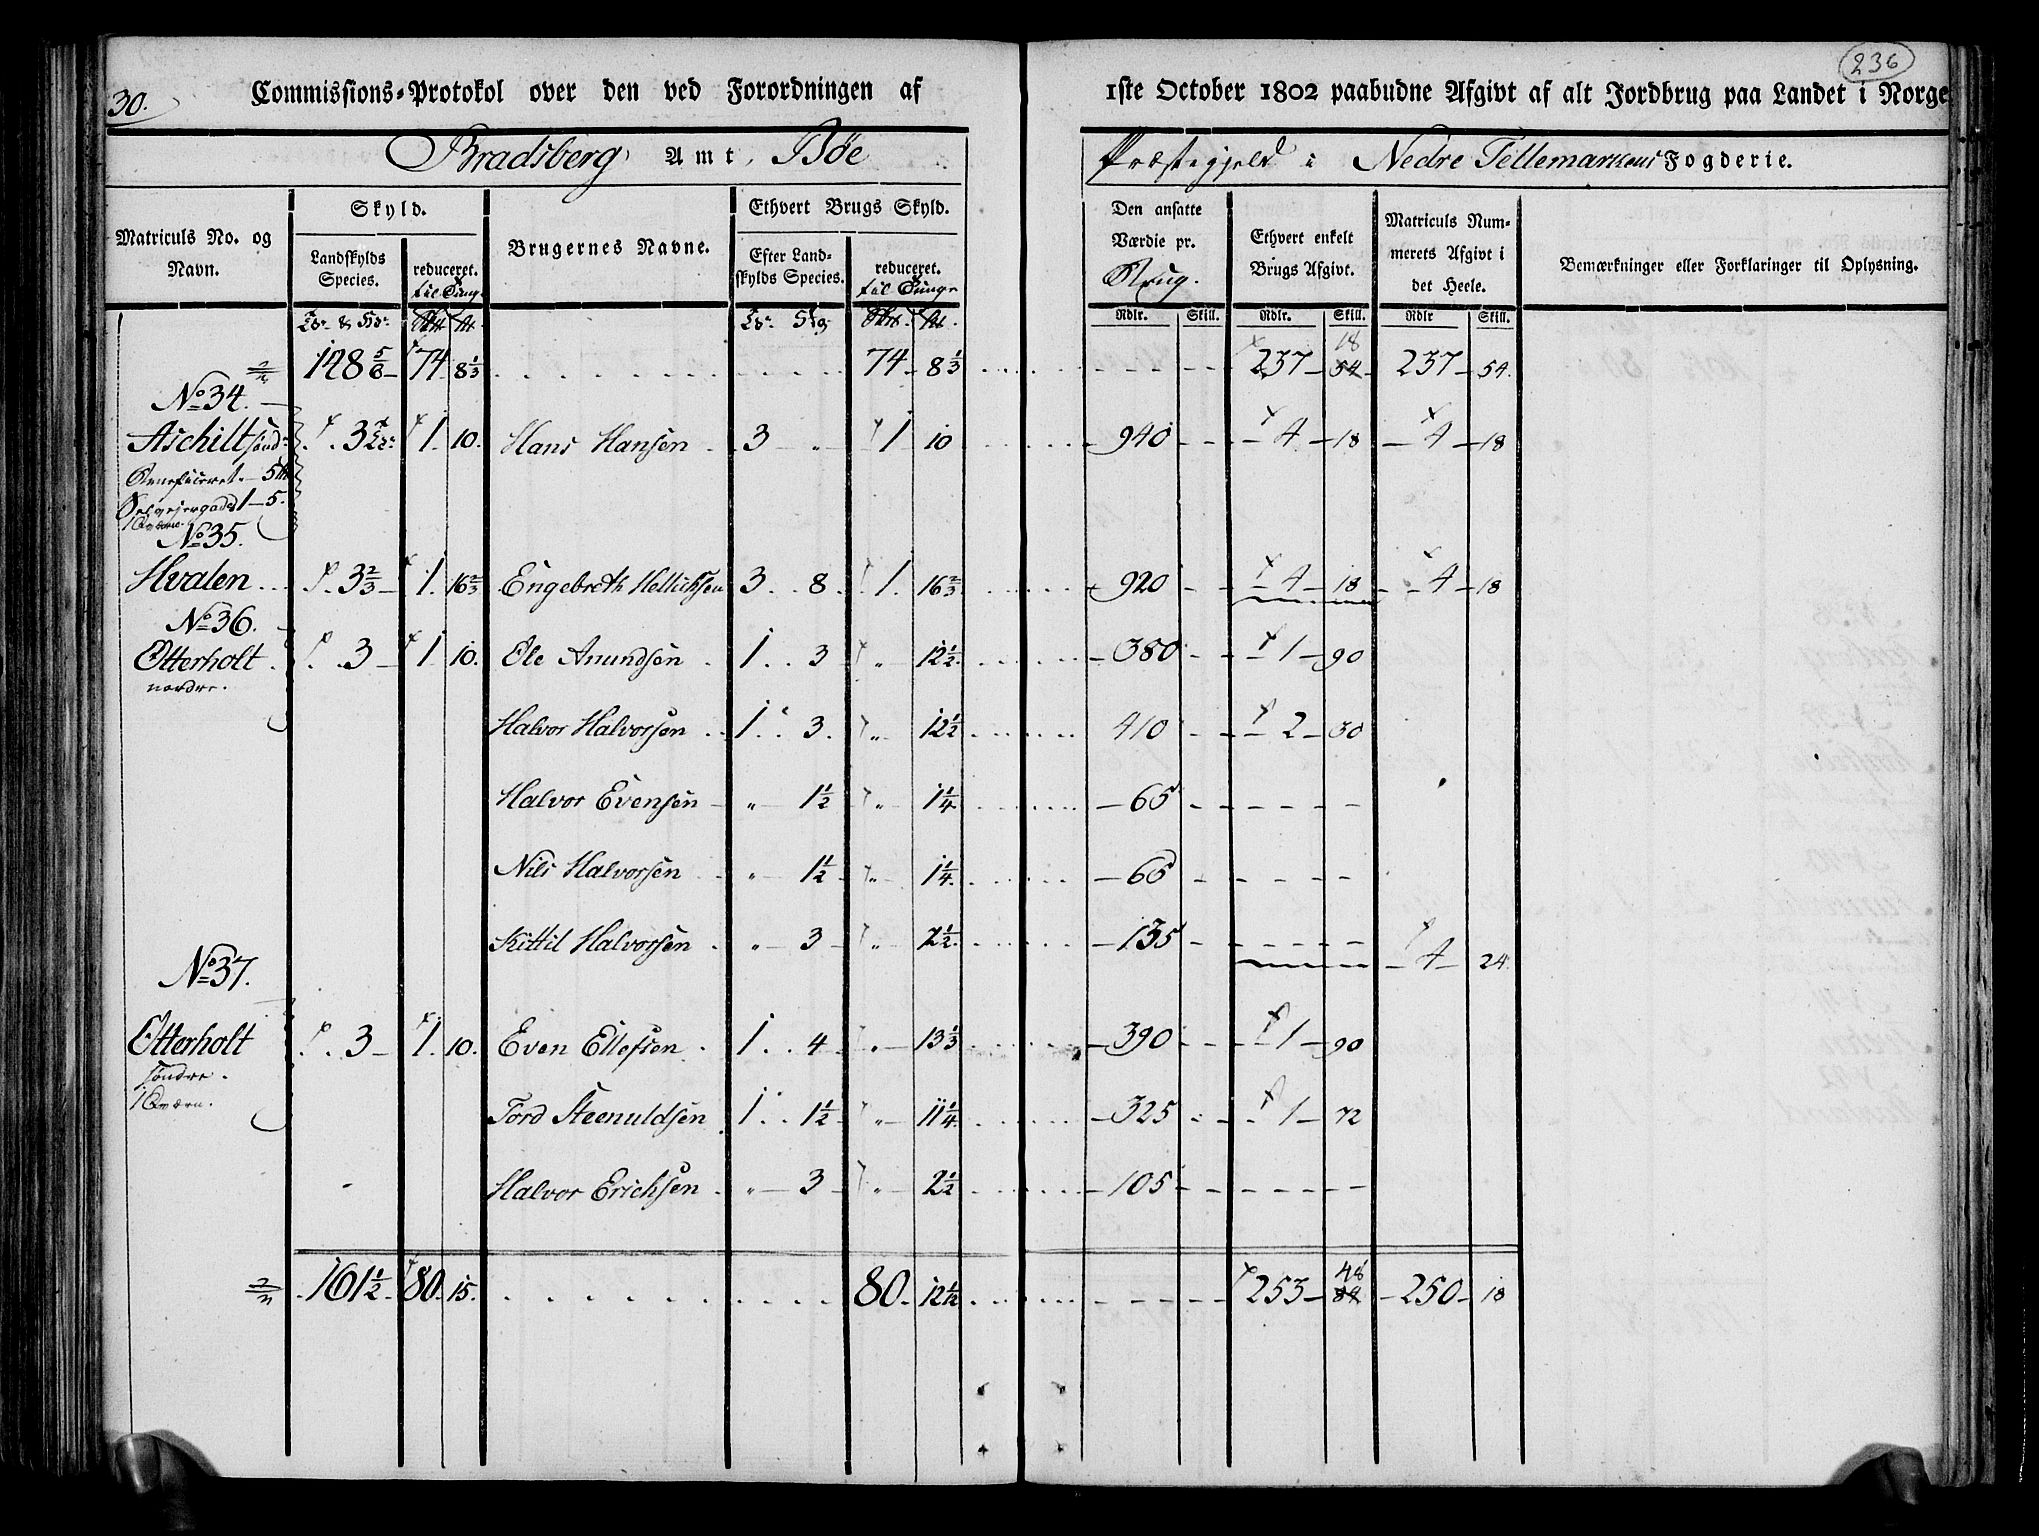 30.
Commissions-Protokol over den ved Forordningen af
1ste October 1802 paabudne Afgivt af alt Jordbrug paa Landet i Norge
236
Bradsberg Amt, Bøe
Præstegjeld i Nedre Tellemarkens Fogderie.
Matriculs No. og Navn.
Skyld.
Landskylds Species.
reduceret. til Tunge
Brugernes Navne.
Ethvert Brugs Skyld.
Efter Landskylds Species.
reduceret. til Tunge
Den ansatte Værdie pr. Brug.
Ethvert enkelt Brugs Afgivt.
Matriculs Nummerets Afgivt i det Heele.
Bemærkninger eller Forklaringer til Oplysning.
Rdlr. Skill. Rdlr. Skill. Rdlr Skill.
148 5/6 74 8 1/3 74 8 1/3 237 18 54 237 54.
No 34.
Aschilt sønd 3 1 10. Hans Hansen 3 " 1 10 940 4 18 4 18
Beneficeret 5
Selvejergods 1-5.
1 Qværn.
No 35.
Hvalen 3 2/3 1. 16 2/3 Engebreth Hellichsen 3 8 1. 16 2/3 920 4 18 4 18
No 36.
Otterholt 3 1. 10. Ole Anundsen 1 3 " 12 1/2 380 1 90
nordre.
Halvor Halvorsen 1 3. " 12 1/2 410 2 30
Halvor Evensen " 1 1/2 " 1 1/4 65
Nils Halvorsen " 1 1/2 " 1 1/4 65
Kittil Halvorsen " 3 " 2 1/2 135 4 24
No 37.
Otterholt 3 1. 10. Even Ellefsen 1 4 " 13 1/3 390 1 90
søndre.
1 Qværn.
Tord Steenuldsen 1 1 1/2 " 11 1/4 325 1 72
Halvor Erichsen " 3 " 2 1/2 105
161 1/2 80. 15. 80. 12 1/12 253 48 250 18